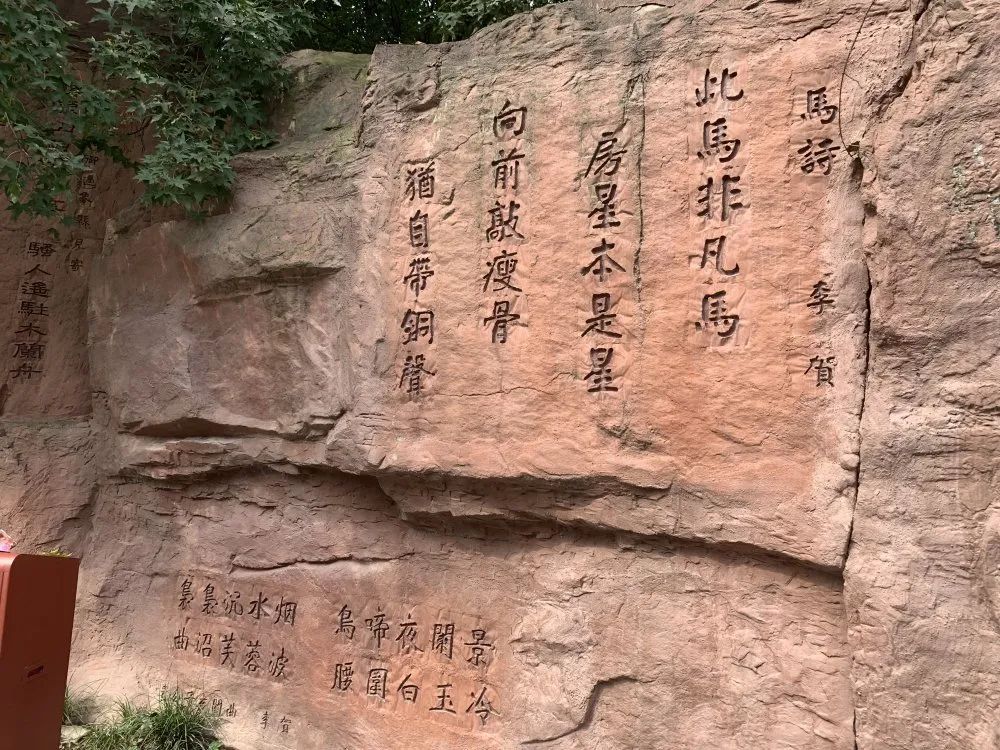 馬詩 李賀
此馬非凡馬
房星本是星
向前敲瘦骨
猶自帶銅聲
御過象縣見寄
騷人遙駐木蘭舟
裊裊沉水烟
烏啼夜闌景
曲沼芙蓉波
腰圍白玉冷
闌曲 李賀